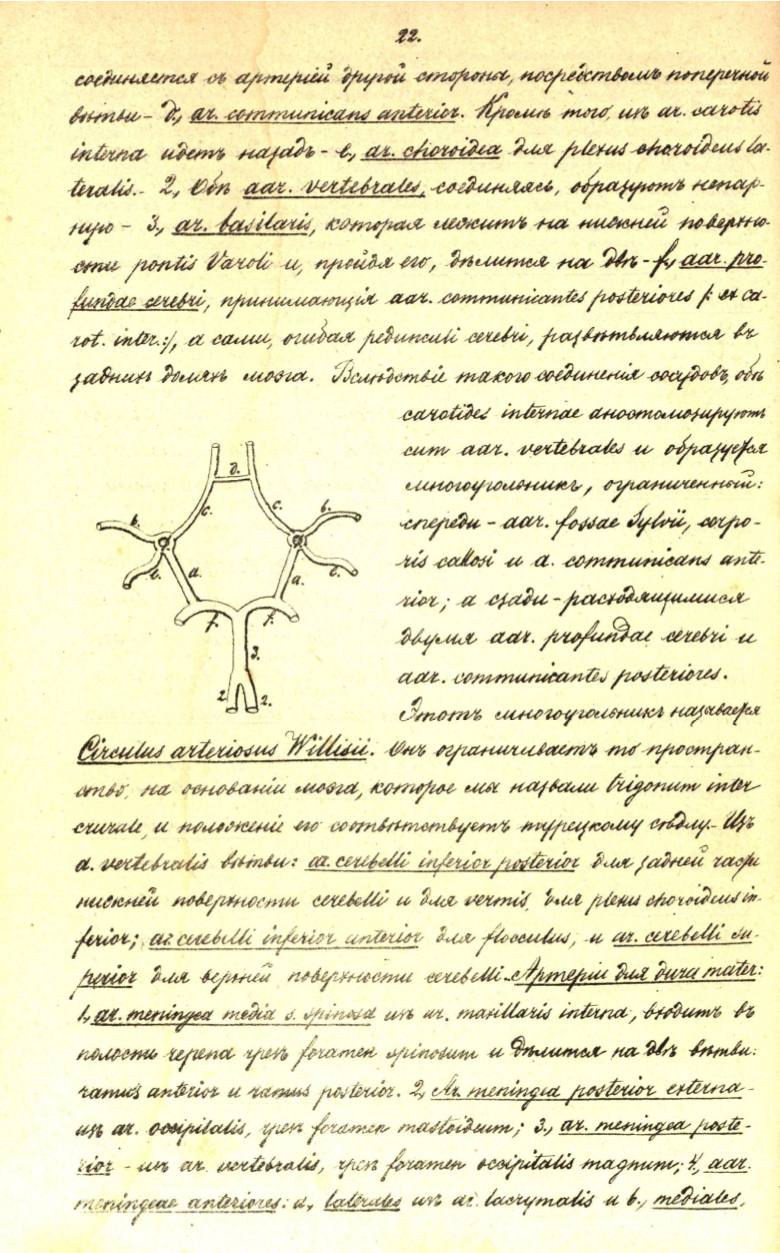 22.
соединяется съ артеріей другой стороны, посредствомъ поперечной
вѣтви – д, ar. communicans anterior. Кромѣ того, изъ ar. carotis
interna идетъ назадъ – e, ar. choroidea для plexus choroideus la-
teralis. – 2, Обѣ aar. vertebrales, соединяясь, образуютъ непар-
ную – 3, ar. basilaris, которая лежитъ на нижней поверхно-
сти pontis Varoli и, пройдя его, дѣлится на двѣ – f, aar. pro-
fundae cerebri, принимающія aar. communicantes posteriores /: ex ca-
rot. inter.:/, а сами, огибая pedunculi cerebri, развѣтвляются въ
заднихъ доляхъ мозга. Вслѣдствіе такого соединенія сосудовъ, обѣ
carotides internae анастомозируютъ
cum aar. vertebrales и образуется
многоугольникъ, ограниченный:
спереди – aar. fossae Sylvii, corpo-
ris callosi и a. communicans ante-
rior; а сзади – расходящимися
двумя aar. profundae cerebri и
aar. communicantes posteriores.
Этотъ многоугольникъ называется
д.
c. c.
b. b.
b. b.
a. a.
f. f.
3.
2. 2.
Circulus arteriosus Willisii. Онъ ограничиваетъ то простран-
ство, на основаніи мозга, которое мы назвали trigonum inter
crurale, и положеніе его соотвѣтствуетъ турецкому сѣдлу. – Изъ
a. vertebralis вѣтви: ar. cerebelli inferior posterior для задней части
нижней поверхности cerebelli и для vermis, для plexus choroideus in-
ferior; ar. cerebelli inferior anterior для flocculus, и ar. cerebelli su-
perior для верхней поверхности cerebelli. – Артеріи для dura mater:
1, ar. meningea media s. spinosa изъ ar. maxillaris interna, входитъ въ
полость черепа чрезъ foramen spinosum и дѣлится на двѣ вѣтви:
ramus anterior и ramus posterior. 2, Ar. meningea posterior externa –
изъ ar. occipitalis, чрезъ foramen mastoideum; 3, ar. meningea poste-
rior – изъ ar. vertebralis, чрезъ foramen occipitalis magnum; 4, aar.
meningeae anteriores: a, laterales изъ ar. lacrymalis и b, mediales,